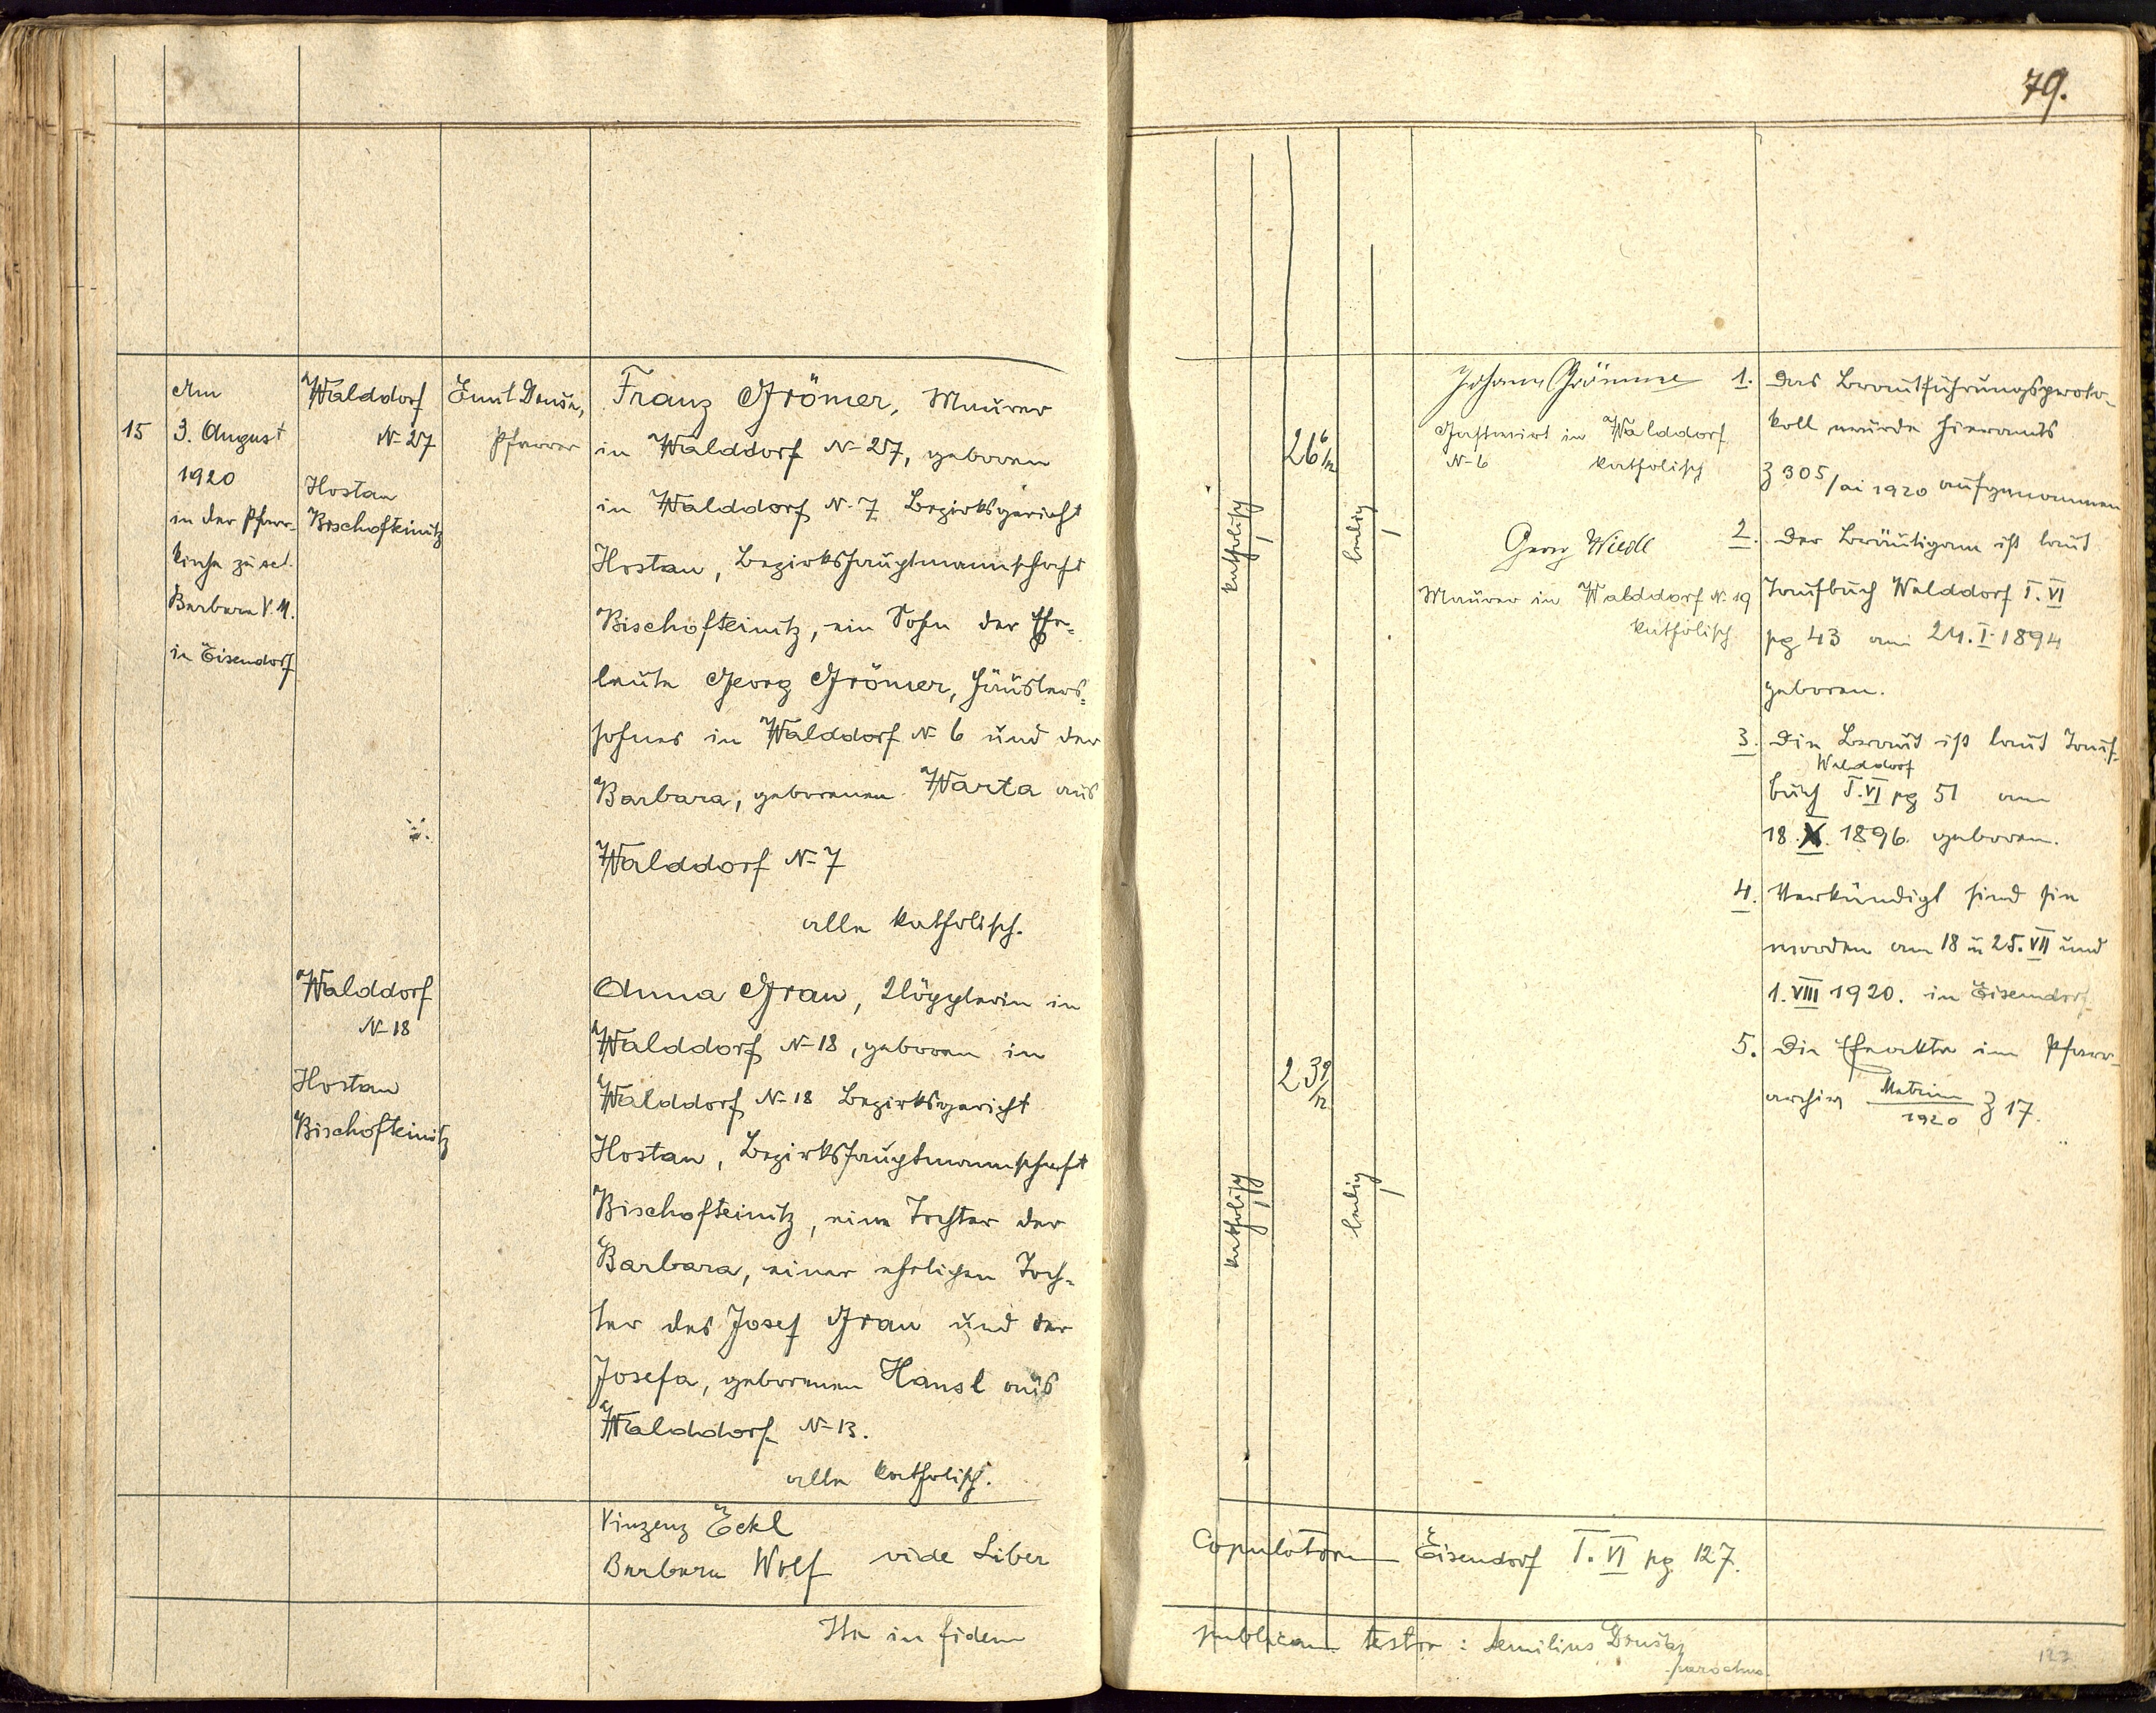 79.
15
Am
3. August
1920
in der Pfarr-
kirche zu sct.
Barbara V. M.
in Eisendorf
Walddorf
N- 27
Hostau
Bischofteinitz
Emil
Pfarrer
Franz Grömer, Maurer
in Walddorf N- 27, geboren
in Walddorf N- 7 Bezirksgericht
Hostau, Bezirkshauptmannschaft
Bischofteinitz, ein Sohn der Ehe-
leute Georg Grömer, Häuslers-
sohnes in Walddorf N- 6 und der
Barbara, geborenen Warta aus
Walddorf N- 7
alle katholisch.
Walddorf
N- 18
Hostau
Bischofteinitz
Anna Grau, Klöpplerin in
Walddorf N- 18, geboren in
Walddorf N- 18 Bezirksgericht
Hostau, Bezirkshauptmannschaft
Bischofteinitz, eine Tochter der
Barbara, einer ehelichen Toch-
ter des Josef Grau und der
Josefa, geborenen Hansl aus
Walddorf N- 13.
alle katholisch.
katholisch
26 6/12
ledig
katholisch
23 9/12
ledig
Johann
Gastwirt in Walddorf
N- 6 katholisch
Georg Wiedl
Maurer in Walddorf N- 19
katholisch
1. Das Brautführungsproto-
koll wurde hieramts
Z 305/ai 1920 aufgenommen
2. Der Bräutigam ist laut
Taufbuch Walddorf T. VI
pg 43 am 24. I. 1894
geboren.
3. Die Braut ist laut Tauf-
Walddorf
buch T. VI pg 51 am
18. X. 1896. geboren.
4. Verkündigt sind sie
worden am 18 u 25. VII und
1. VIII 1920. in Eisendorf
5. Die Eheakten im Pfarr-
archiv Matrim/1920 Z 17.
Vinzenz Eckl
Barbara Wolf vide Liber Copulatorum Eisendorf T. VI pg 127.
Ita in fidem publicam testor: Aemilius
parochus.